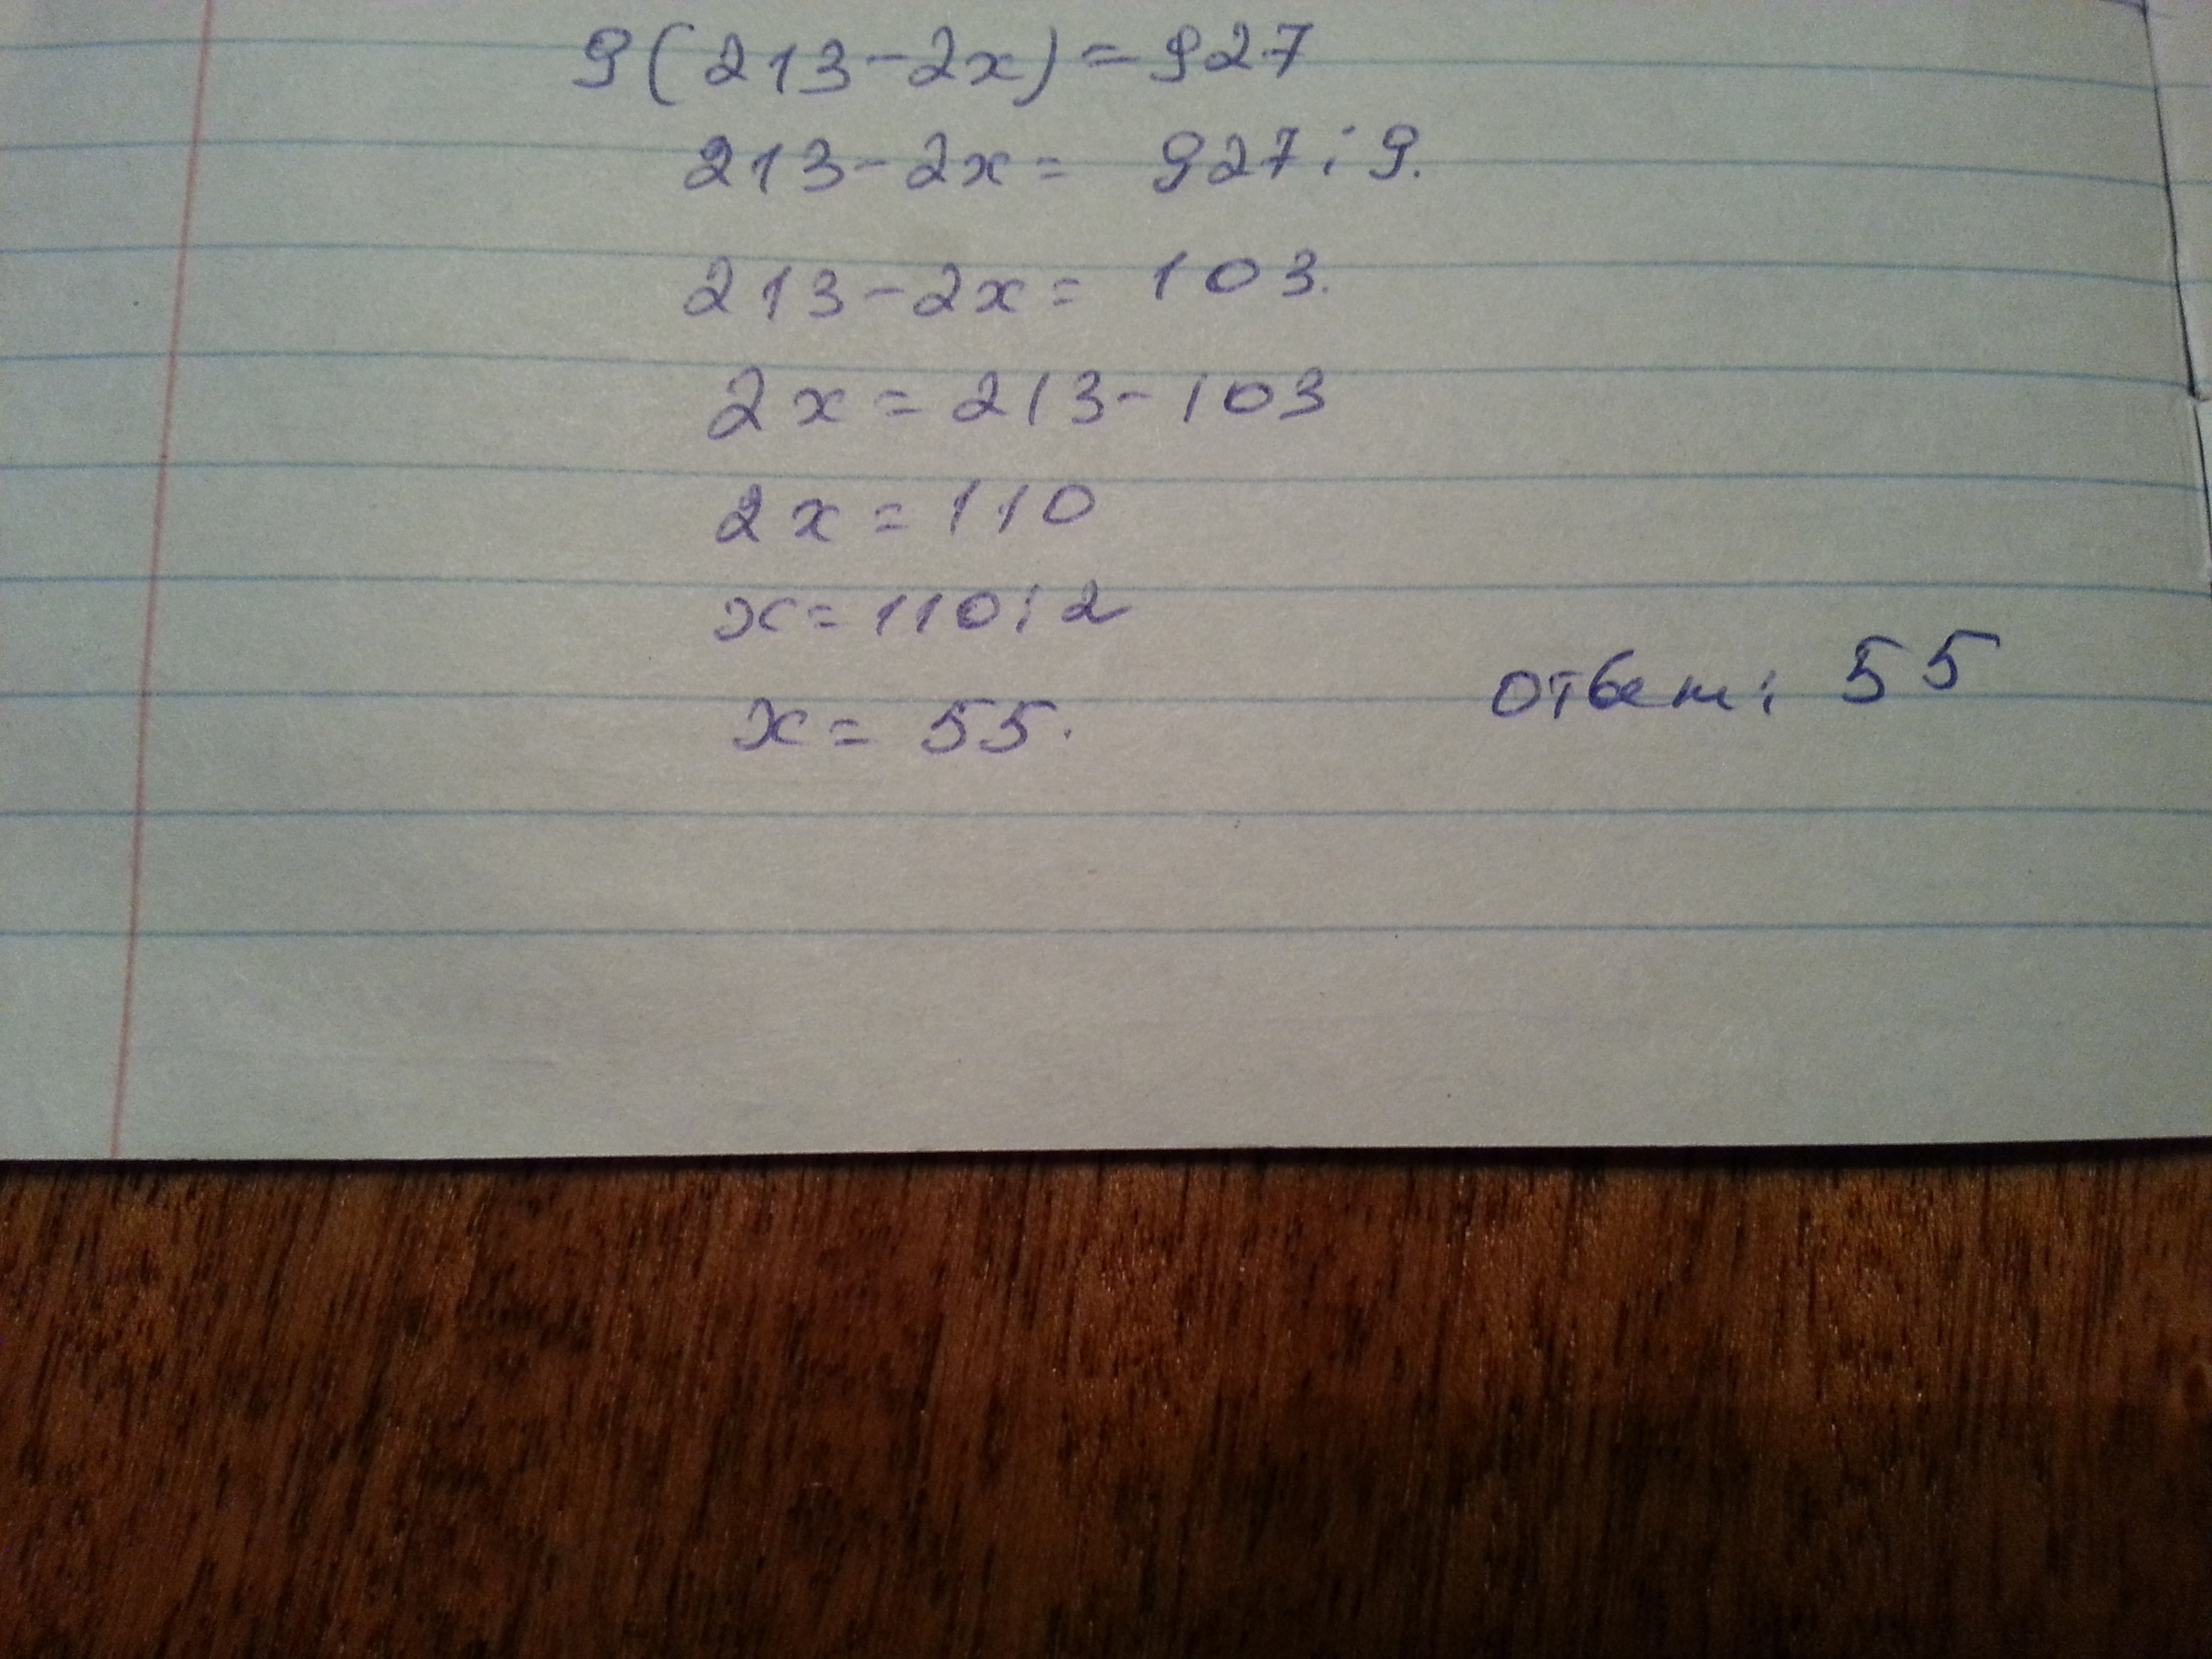 9(213-2x)=927
213-2x= 927:9.
213-2x= 103.
2x=213-103
2x=110
x=110:2
x= 55.
Ответ: 55